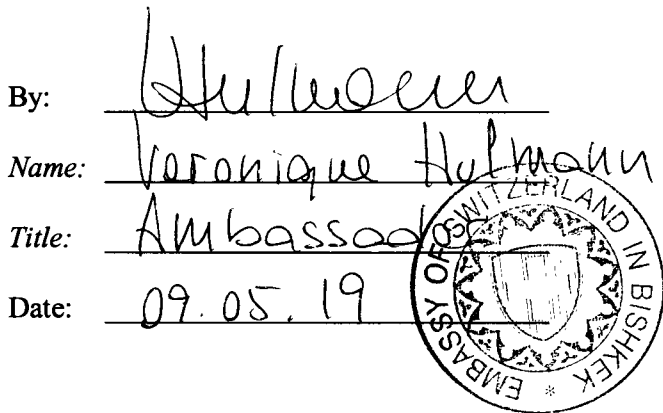 By:
Name: Veronique Hulmann
Title: Ambassador
Date: 09.05.19
EMBASSY OF SWITZERLAND IN BISHKEK *